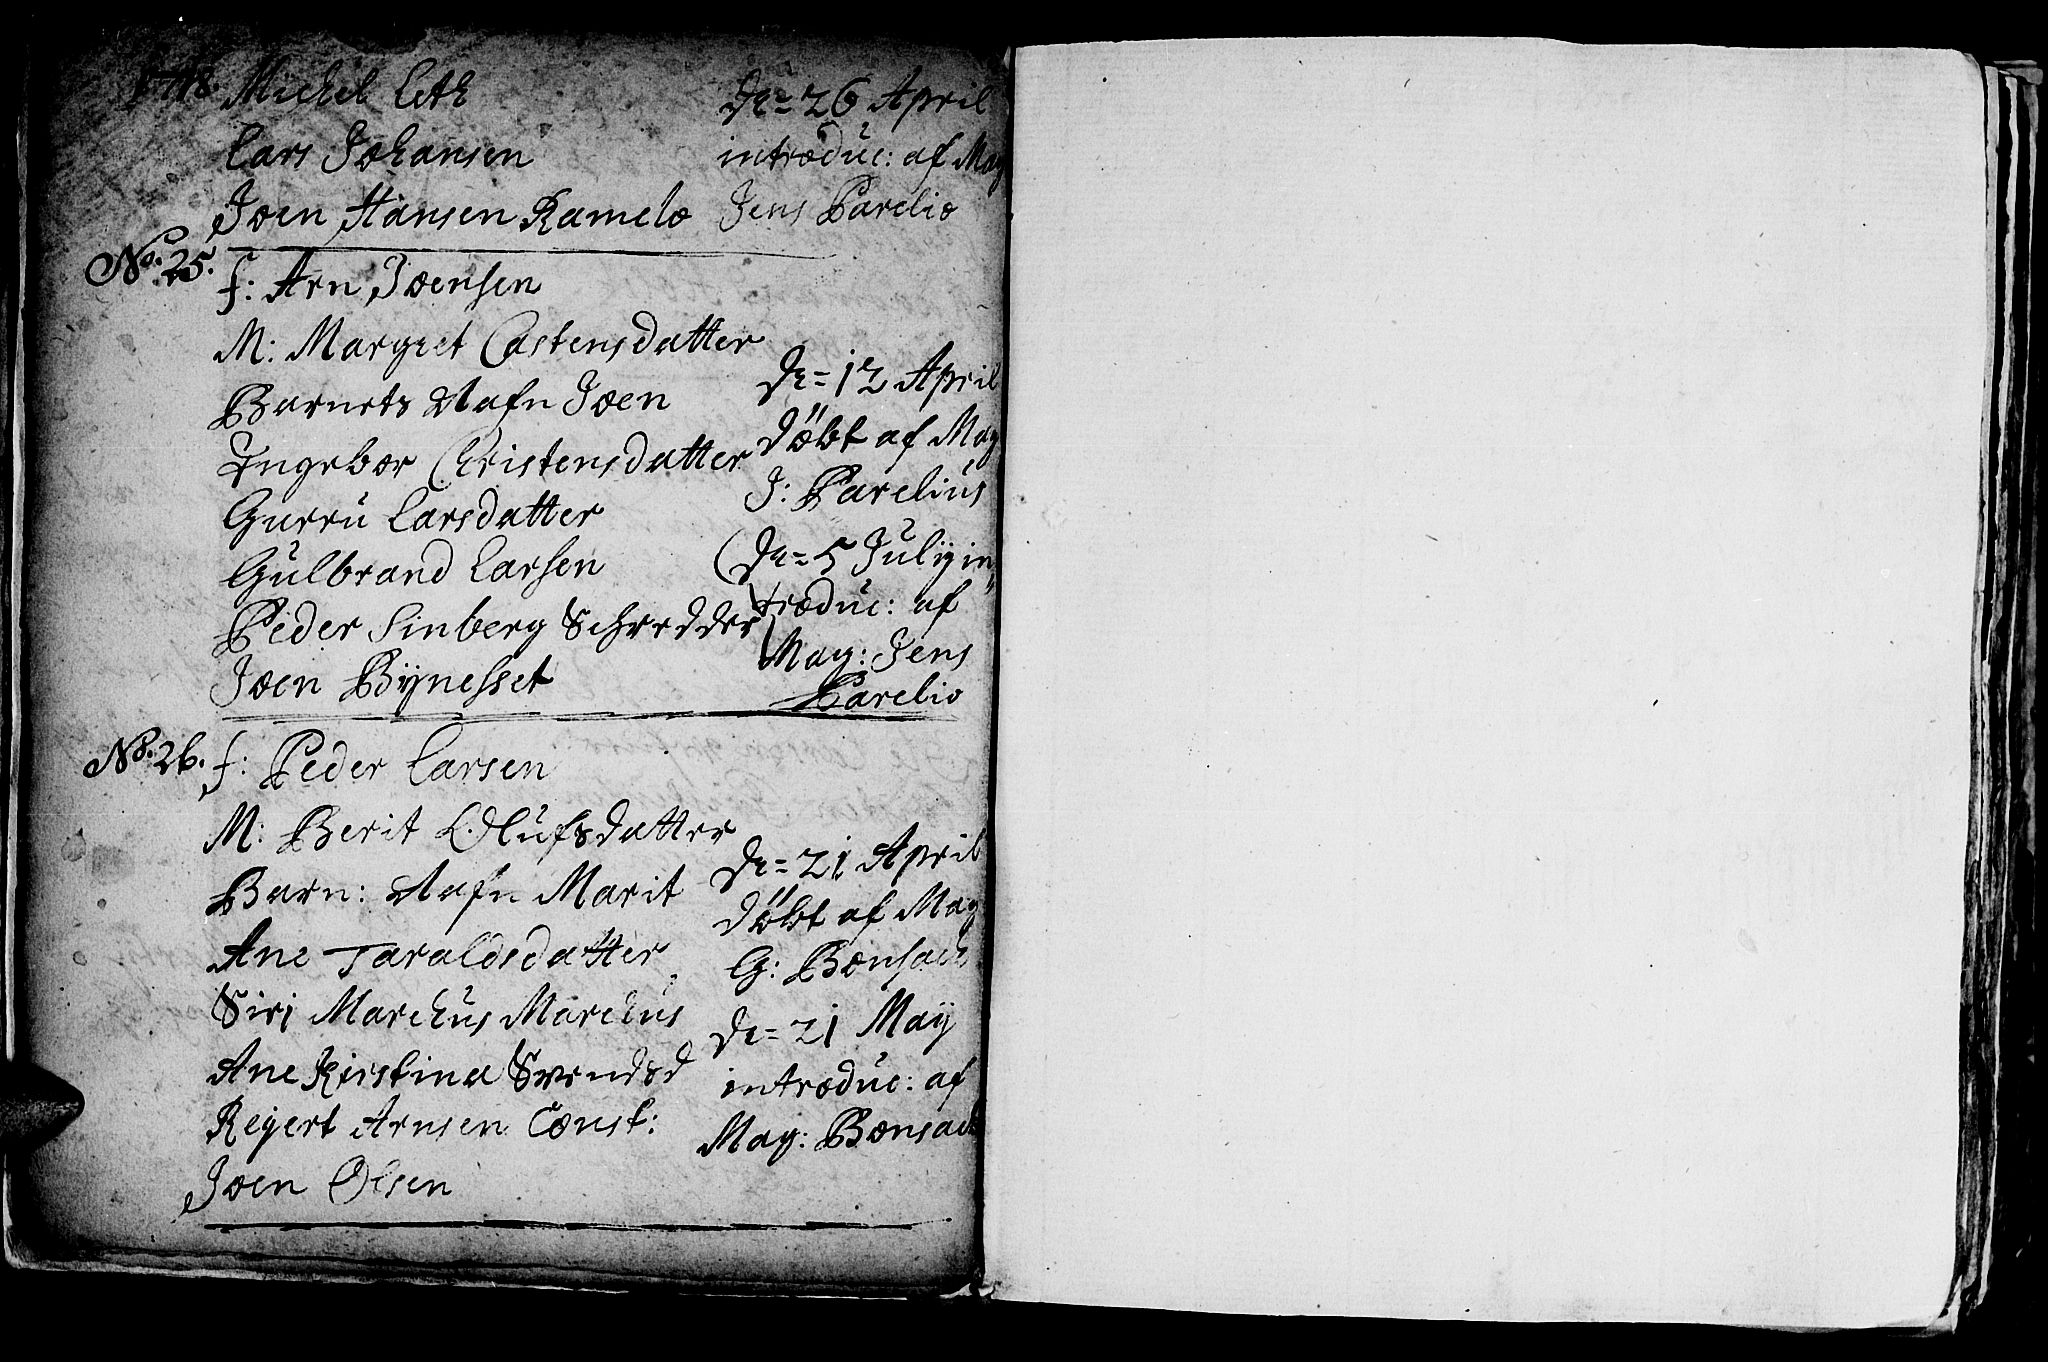 1718. Michel Leth
Lars Johansen
Joen Hansen Ramelo
De= 26 April
introduc: af Mag
Jens Parelio
No. 25.
f: Arn Joensen
M: Margret Castensdatter
Barnets Nafn Joen
Ingebor Christensdatter
Gurru Larsdatter
Gulbrand Larsen
Peder Sinberg Schredder
Joen Bÿnesset
De= 12 April
döbt af Mag
J: Parelius
De= 5 Julÿ in
troduc: af
Mag: Jens
Parelio
No. 26.
f: Peder Larsen
M: Berit Olufsdatter
Barn: Nafn Marit
Ane Taraldsdatter
Siri Marckus Marckus
Ane Kirstina Svendsd
Regert Arnsen Const:
Joen Olsen
De= 21 April
döbt af Mag
G: Bonsack
De= 21 Maÿ
introduc: af
Mag: Bonsack